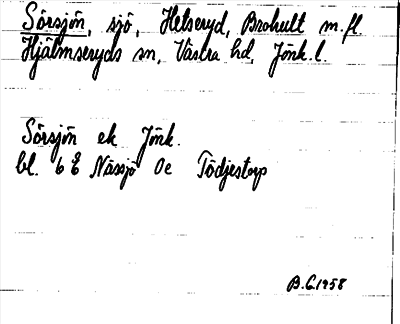 Sörsjön, sjö, Hetseryd, Brohult m.fl.
Hjälmseryds sn, Västra hd, Jönk.l.
Sörsjön ek Jönk.
bl. 6 E Nässjö 0c Tödjestorp
B.G. 1958